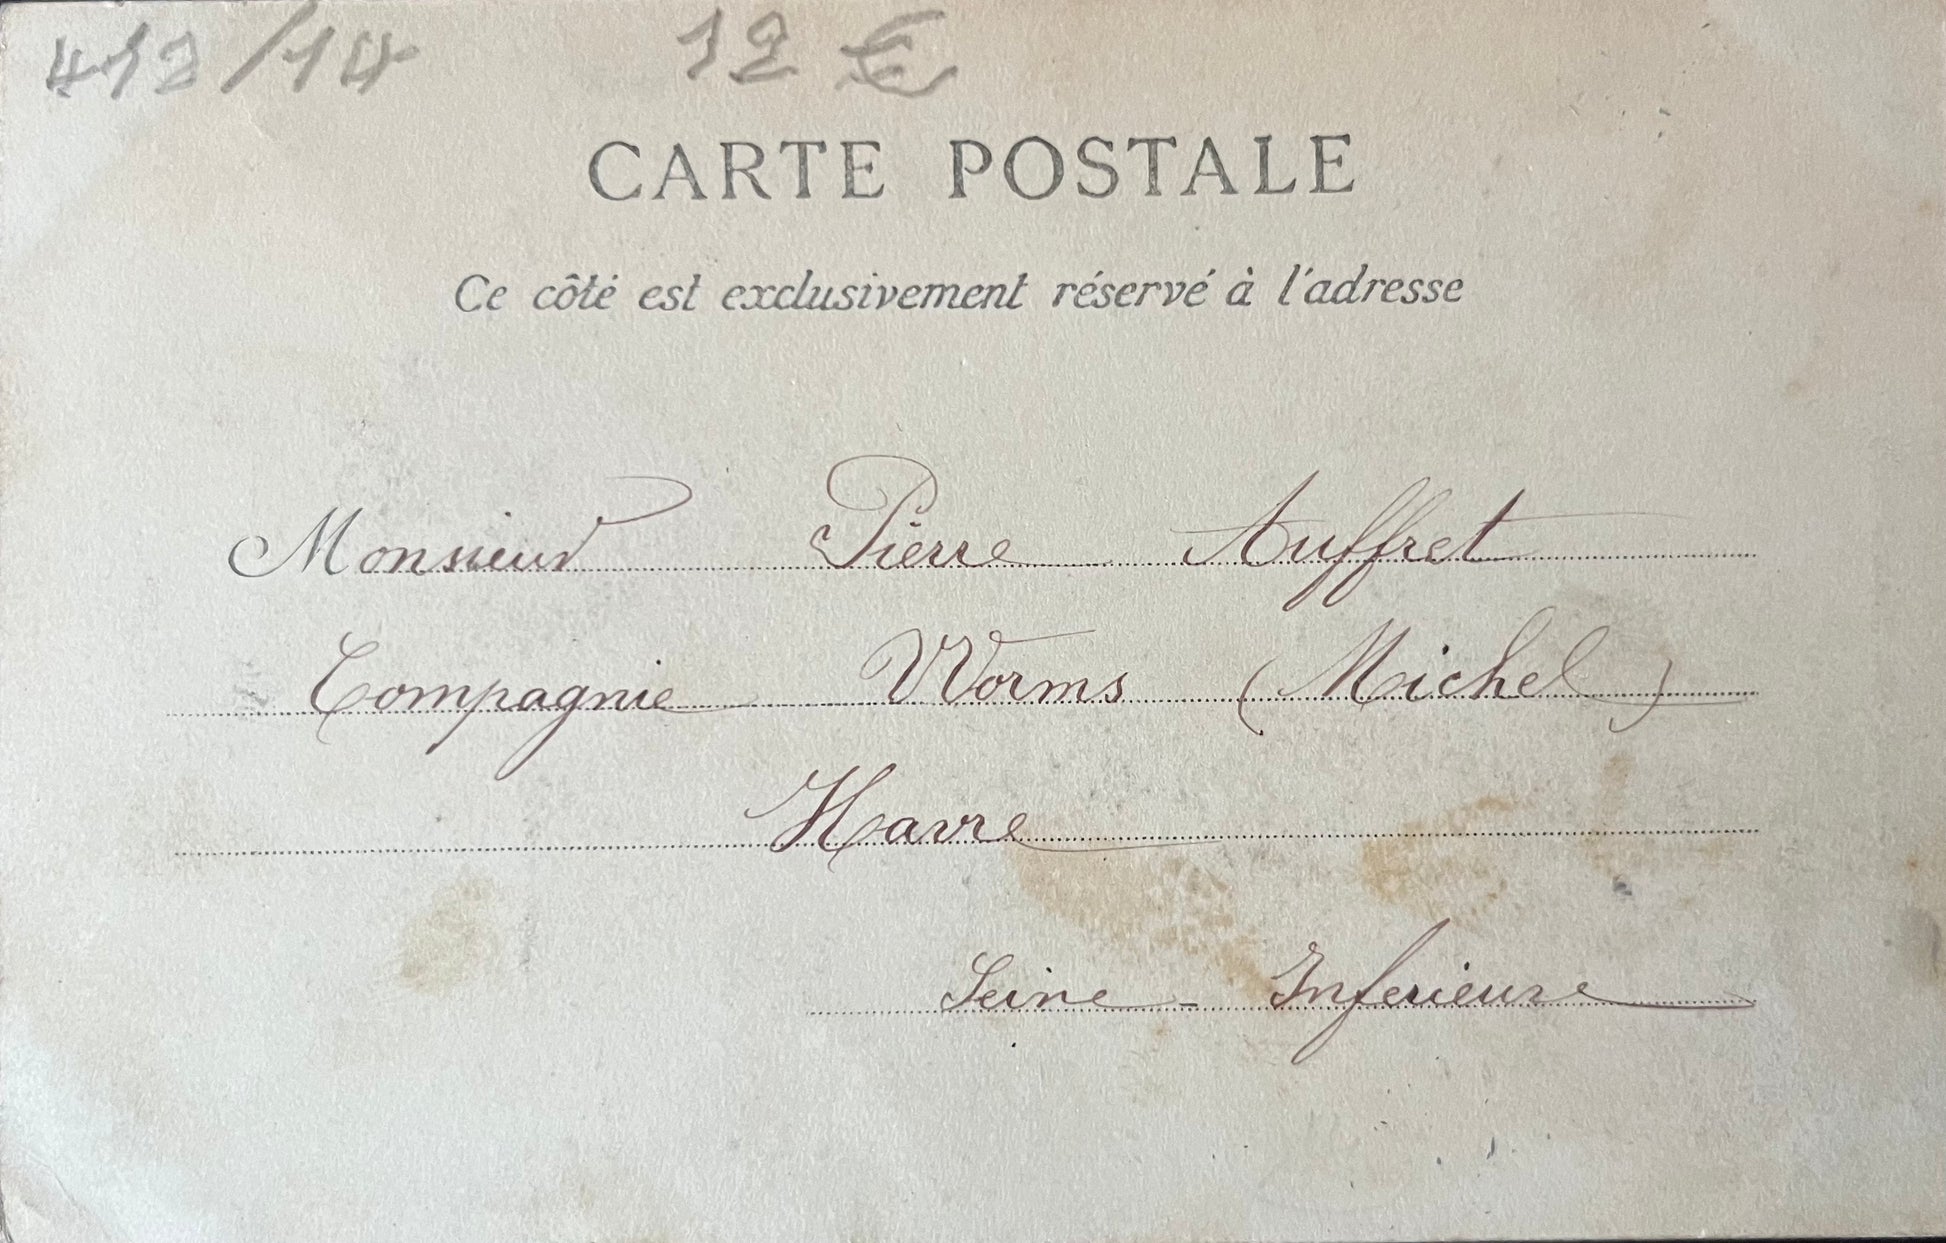 412/14 12 €
CARTE POSTALE
Ce côté est exclusivement réservé à l'adresse
Monsieur Pierre Auffret
Compagnie Worms (Michel)
Havre
Seine - Inferieure